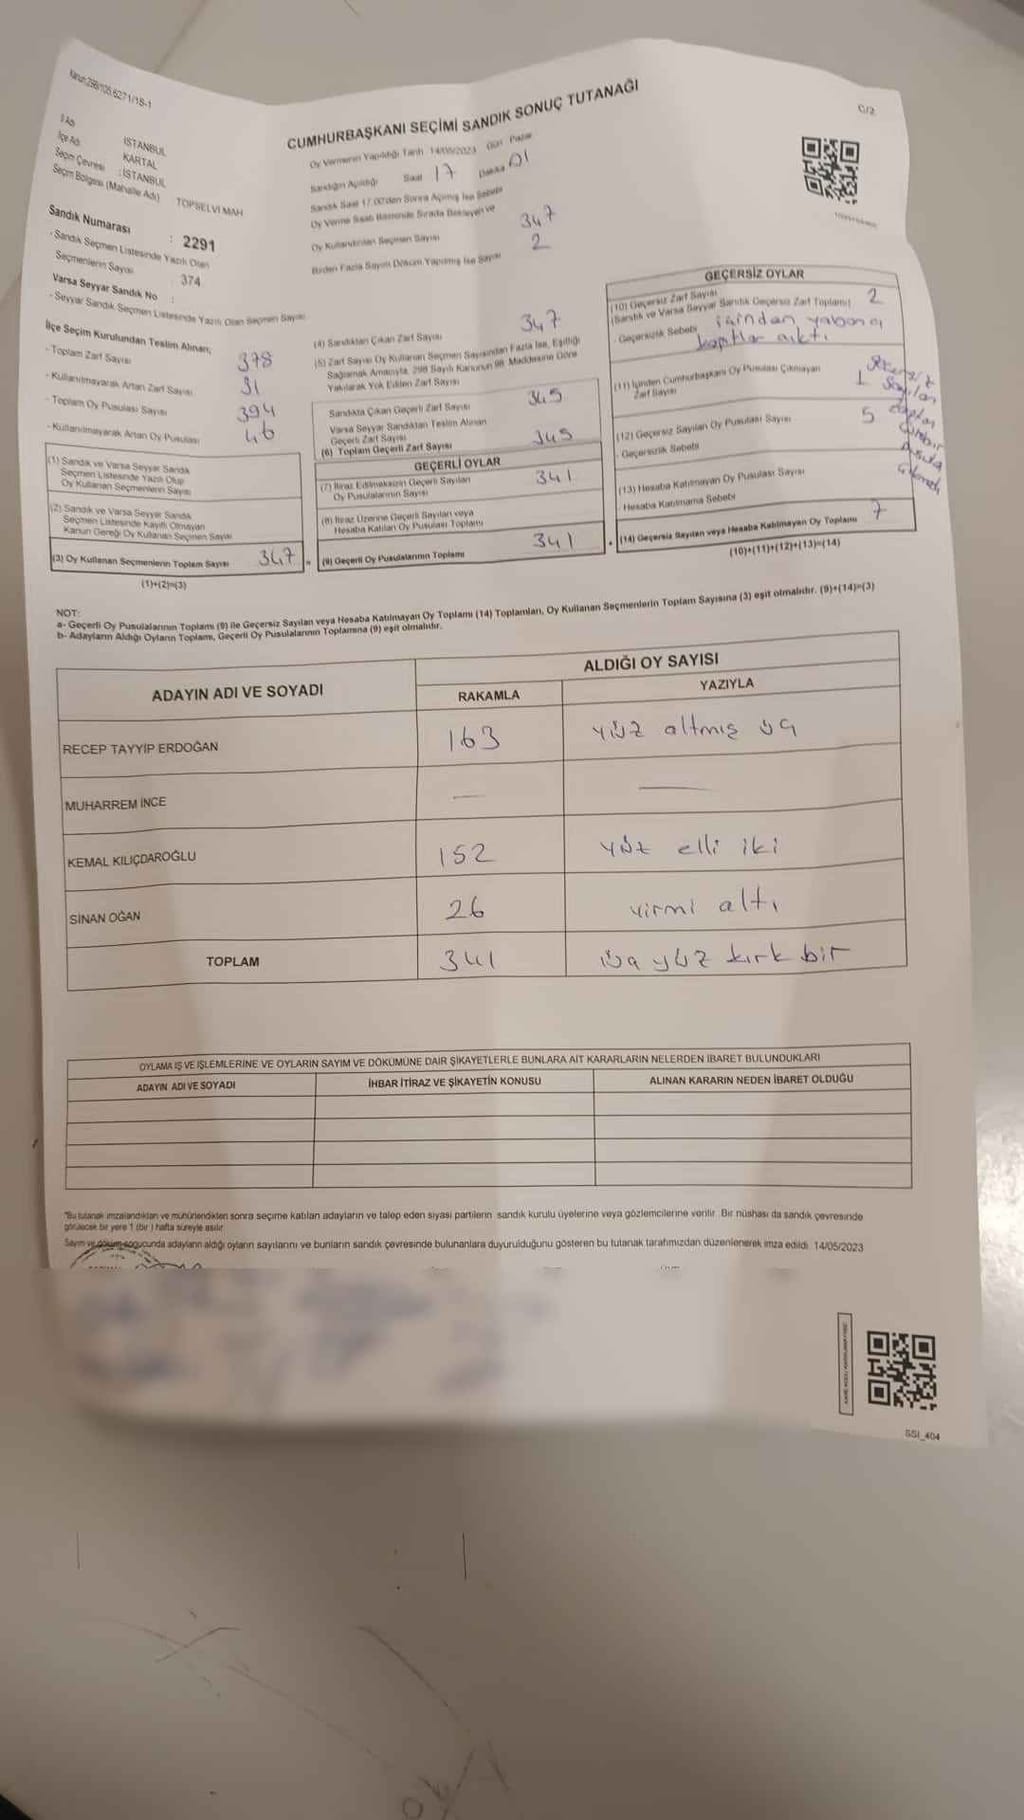 Kanun:298/105,6271/18-1
C/2
CUMHURBAŞKANI SEÇİMİ SANDIK SONUÇ TUTANAĞI
İl Adı
İSTANBUL
İlçe Adı
KARTAL
Seçim Çevresi : İSTANBUL
Seçim Bölgesi (Mahalle Adı) TOPSELVİ MAH
Sandık Numarası : 2291
- Sandık Seçmen Listesinde Yazılı Olan
Seçmenlerin Sayısı 374
Varsa Seyyar Sandık No :
- Seyyar Sandık Seçmen Listesinde Yazılı Olan Seçmen Sayısı
Oy Vermenin Yapıldığı Tarih 14/05/2023 Gün Pazar
Sandığın Açıldığı Saat 17 Dakika 01
Sandık Saat 17:00'den Sonra Açılmış İse Sebebi
Oy Verme Saati Bitiminde Sırada Bekleyen ve
Oy Kullandırılan Seçmen Sayısı 347
Birden Fazla Sayım Döküm Yapılmış İse Sayısı 2
İlçe Seçim Kurulundan Teslim Alınan;
- Toplam Zarf Sayısı 378
- Kullanılmayarak Artan Zarf Sayısı 31
- Toplam Oy Pusulası Sayısı 394
- Kullanılmayarak Artan Oy Pusulası 46
(1) Sandık ve Varsa Seyyar Sandık
Seçmen Listesinde Yazılı Olup
Oy Kullanan Seçmenlerin Sayısı
(2) Sandık ve Varsa Seyyar Sandık
Seçmen Listesinde Kayıtlı Olmayan
Kanun Gereği Oy Kullanan Seçmen Sayısı
(3) Oy Kullanan Seçmenlerin Toplam Sayısı 347
(1)+(2)=(3)
(4) Sandıktan Çıkan Zarf Sayısı 347
(5) Zarf Sayısı Oy Kullanan Seçmen Sayısından Fazla İse, Eşitliği
Sağlamak Amacıyla, 298 Sayılı Kanunun 98. Maddesine Göre
Yakılarak Yok Edilen Zarf Sayısı
Sandıkta Çıkan Geçerli Zarf Sayısı 345
Varsa Seyyar Sandıktan Teslim Alınan
Geçerli Zarf Sayısı
(6) Toplam Geçerli Zarf Sayısı 345
GEÇERLİ OYLAR
(7) İtiraz Edilmeksizin Geçerli Sayılan
Oy Pusulalarının Sayısı 341
(8) İtiraz Üzerine Geçerli Sayılan veya
Hesaba Katılan Oy Pusulası Toplamı
(9) Geçerli Oy Pusulalarının Toplamı 341
GEÇERSİZ OYLAR
(10) Geçersiz Zarf Sayısı 2
(Sandık ve Varsa Seyyar Sandık Geçersiz Zarf Toplamı)
Geçersizlik Sebebi içinden yabancı
kağıtlar çıktı
(11) İçinden Cumhurbaşkanı Oy Pusulası Çıkmayan
Zarf Sayısı 1
(12) Geçersiz Sayılan Oy Pusulası Sayısı 5
- Geçersizlik Sebebi
(13) Hesaba Katılmayan Oy Pusulası Sayısı
- Hesaba Katılmama Sebebi
(14) Geçersiz Sayılan veya Hesaba Katılmayan Oy Toplamı 7
(10)+(11)+(12)+(13)=(14)
NOT:
a- Geçerli Oy Pusulalarının Toplamı (9) ile Geçersiz Sayılan veya Hesaba Katılmayan Oy Toplamı (14) Toplamları, Oy Kullanan Seçmenlerin Toplam Sayısına (3) eşit olmalıdır. (9)+(14)=(3)
b- Adayların Aldığı Oyların Toplamı, Geçerli Oy Pusulalarının Toplamına (9) eşit olmalıdır.
ADAYIN ADI VE SOYADI
ALDIĞI OY SAYISI
RAKAMLA YAZIYLA
RECEP TAYYİP ERDOĞAN 163 yüz altmış üç
MUHARREM İNCE — —
KEMAL KILIÇDAROĞLU 152 yüz elli iki
SİNAN OĞAN 26 yirmi altı
TOPLAM 341 üç yüz kırk bir
OYLAMA İŞ VE İŞLEMLERİNE VE OYLARIN SAYIM VE DÖKÜMÜNE DAİR ŞİKAYETLERLE BUNLARA AİT KARARLARIN NELERDEN İBARET BULUNDUKLARI
ADAYIN ADI VE SOYADI İHBAR İTİRAZ VE ŞİKAYETİN KONUSU ALINAN KARARIN NEDEN İBARET OLDUĞU
*Bu tutanak imzalandıktan ve mühürlendikten sonra seçime katılan adayların ve talep eden siyasi partilerin sandık kurulu üyelerine veya gözlemcilerine verilir. Bir nüshası da sandık çevresinde
görülecek bir yere 1 (bir) hafta süreyle asılır.
Sayım ve döküm sonucunda adayların aldığı oyların sayılarını ve bunların sandık çevresinde bulunanlara duyurulduğunu gösteren bu tutanak tarafımızdan düzenlenerek imza edildi. 14/05/2023
SSI_404